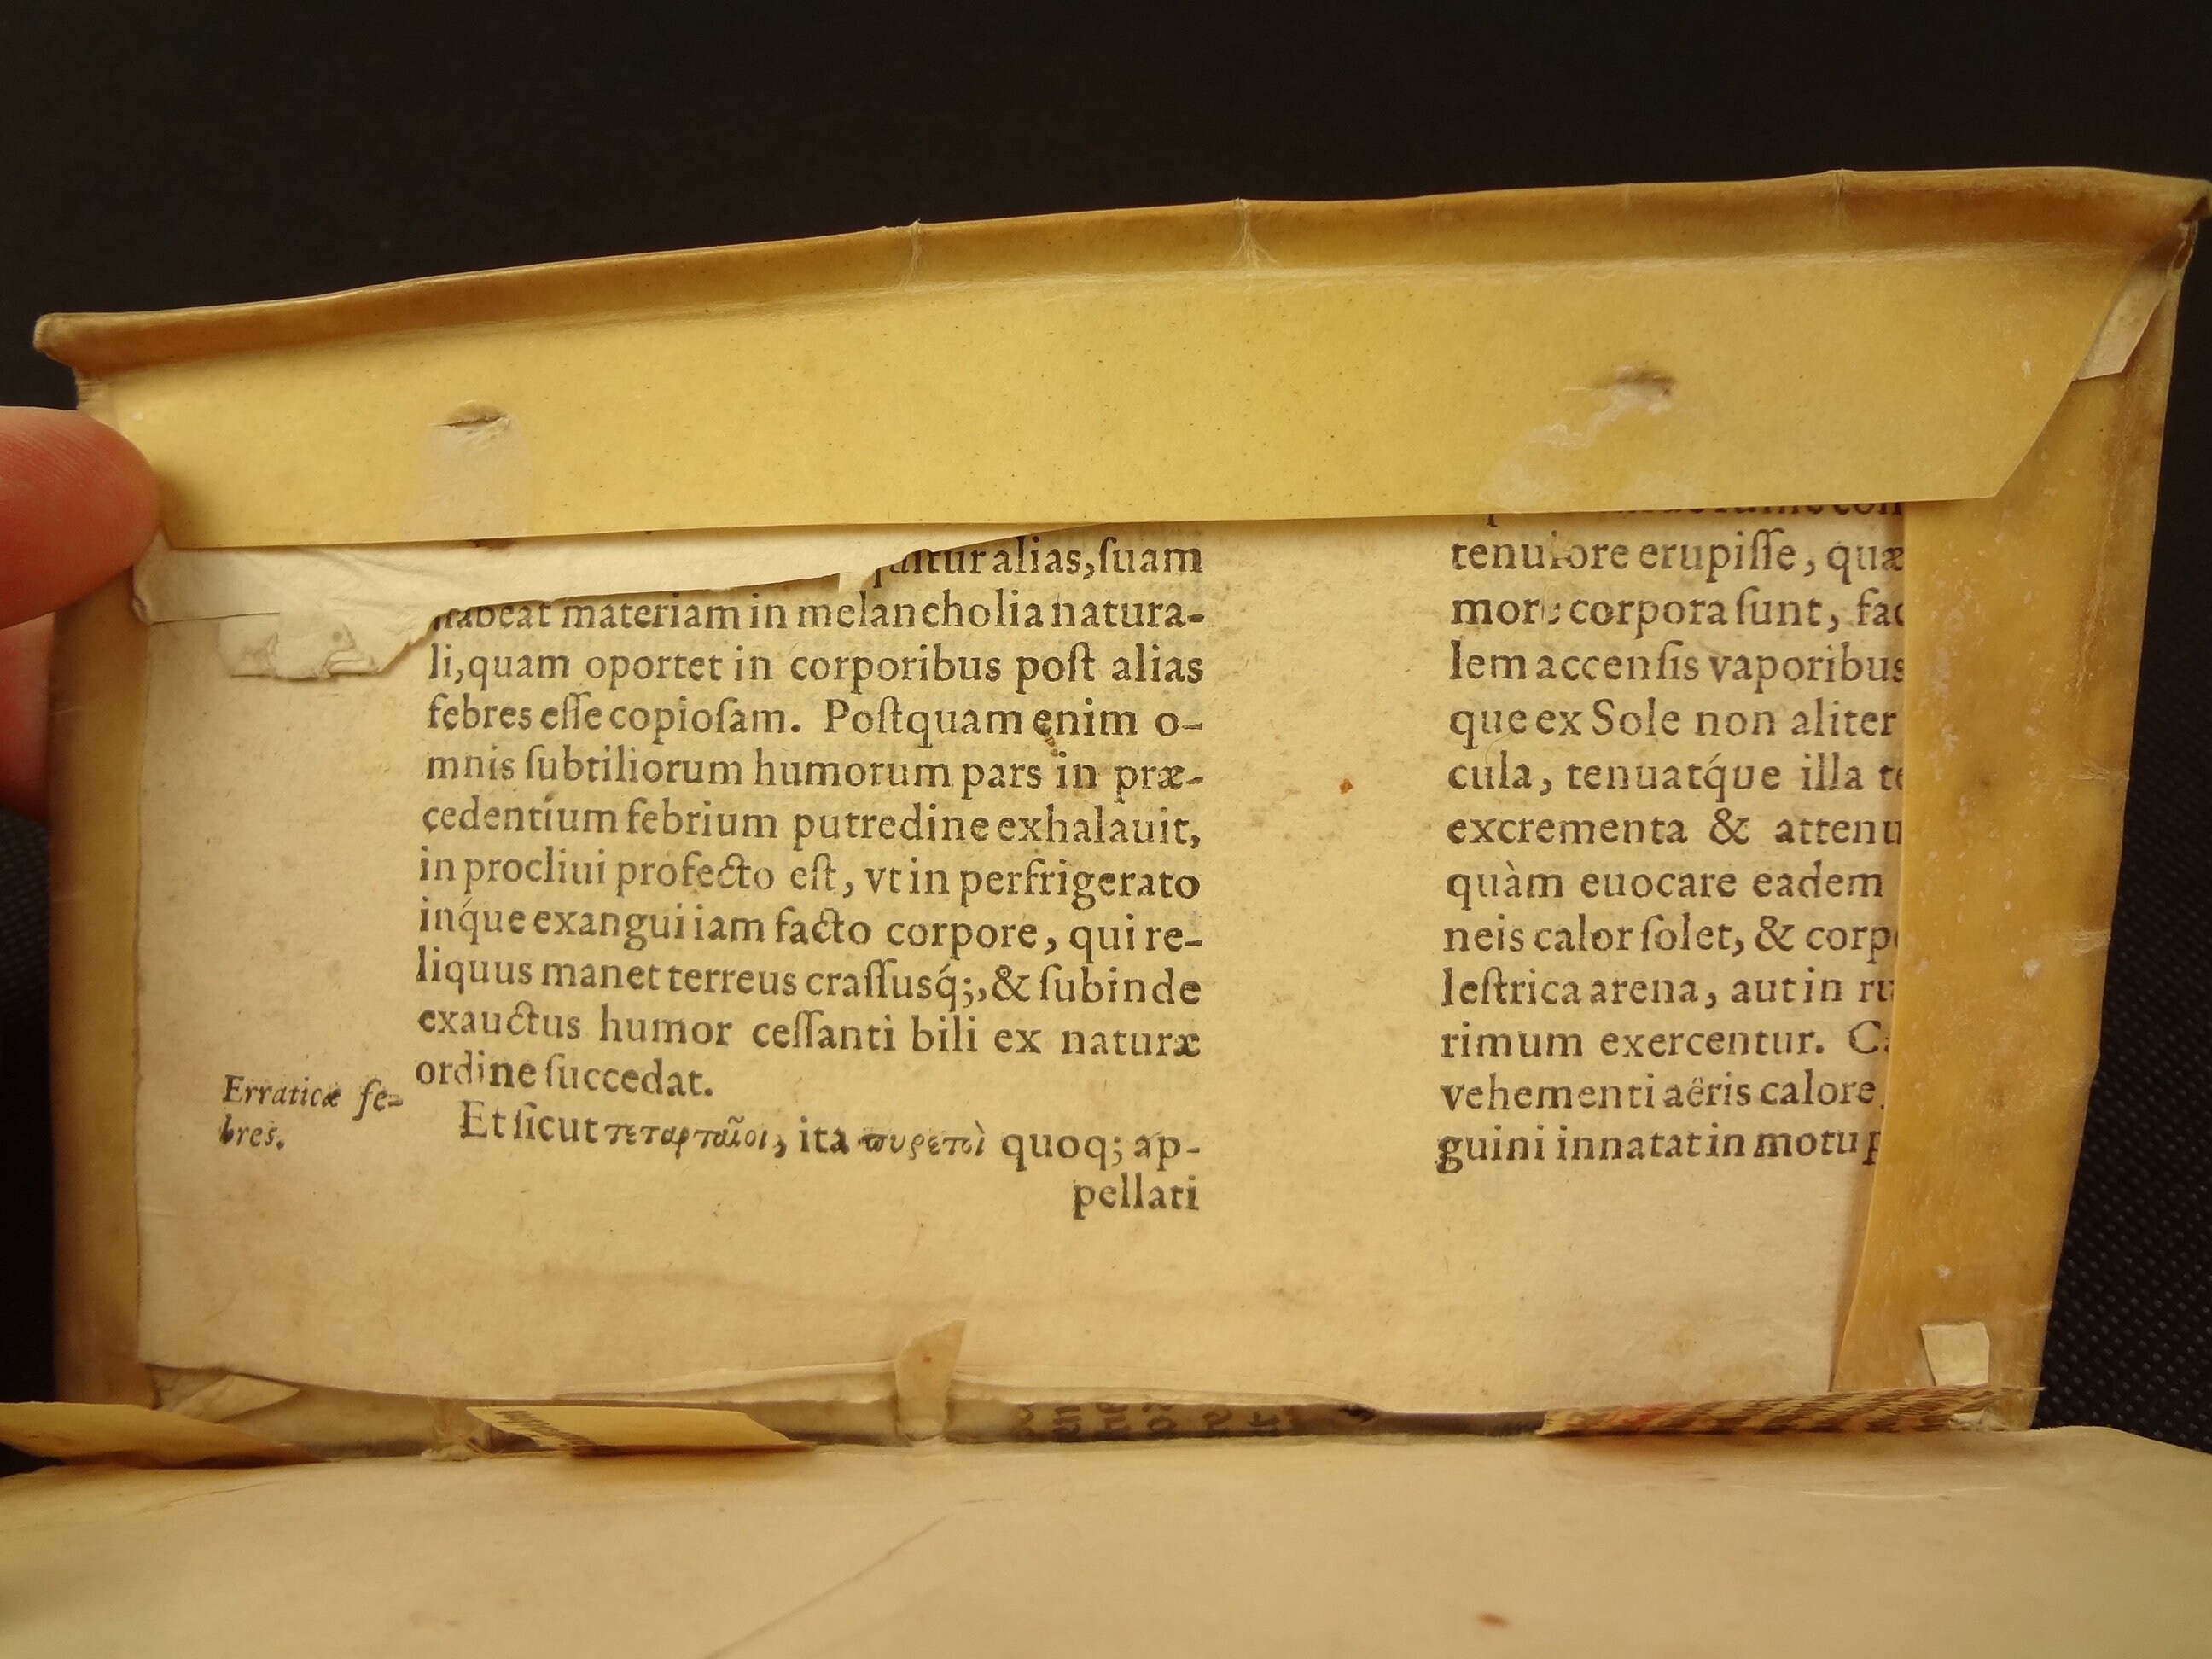 alias,ſuam
habeat materiam in melancholia natura-
li,quam oportet in corporibus poſt alias
febres eſſe copioſam. Poſtquam enim o-
mnis ſubtiliorum humorum pars in præ-
cedentium febrium putredine exhalauit,
in procliui profecto eſt, vt in perfrigerato
inq́ue exangui iam facto corpore, qui re-
liquus manet terreus craſſusq́;,& ſubinde
exauctus humor ceſſanti bili ex naturæ
ordine ſuccedat.
Erraticæ fe-
bres.
Et ſicut τεταρταῖοι, ita πυρετοὶ quoq; ap-
pellati
tenuiore erupiſſe, quæ
more corpora ſunt, fac
lem accenſis vaporibus
que ex Sole non aliter
cula, tenuatq́ue illa te
excrementa & attenu
quàm euocare eadem
neis calor ſolet, & corp
leſtrica arena, aut in ru
rimum exercentur. Ca
vehementi aëris calore
guini innatat in motu p